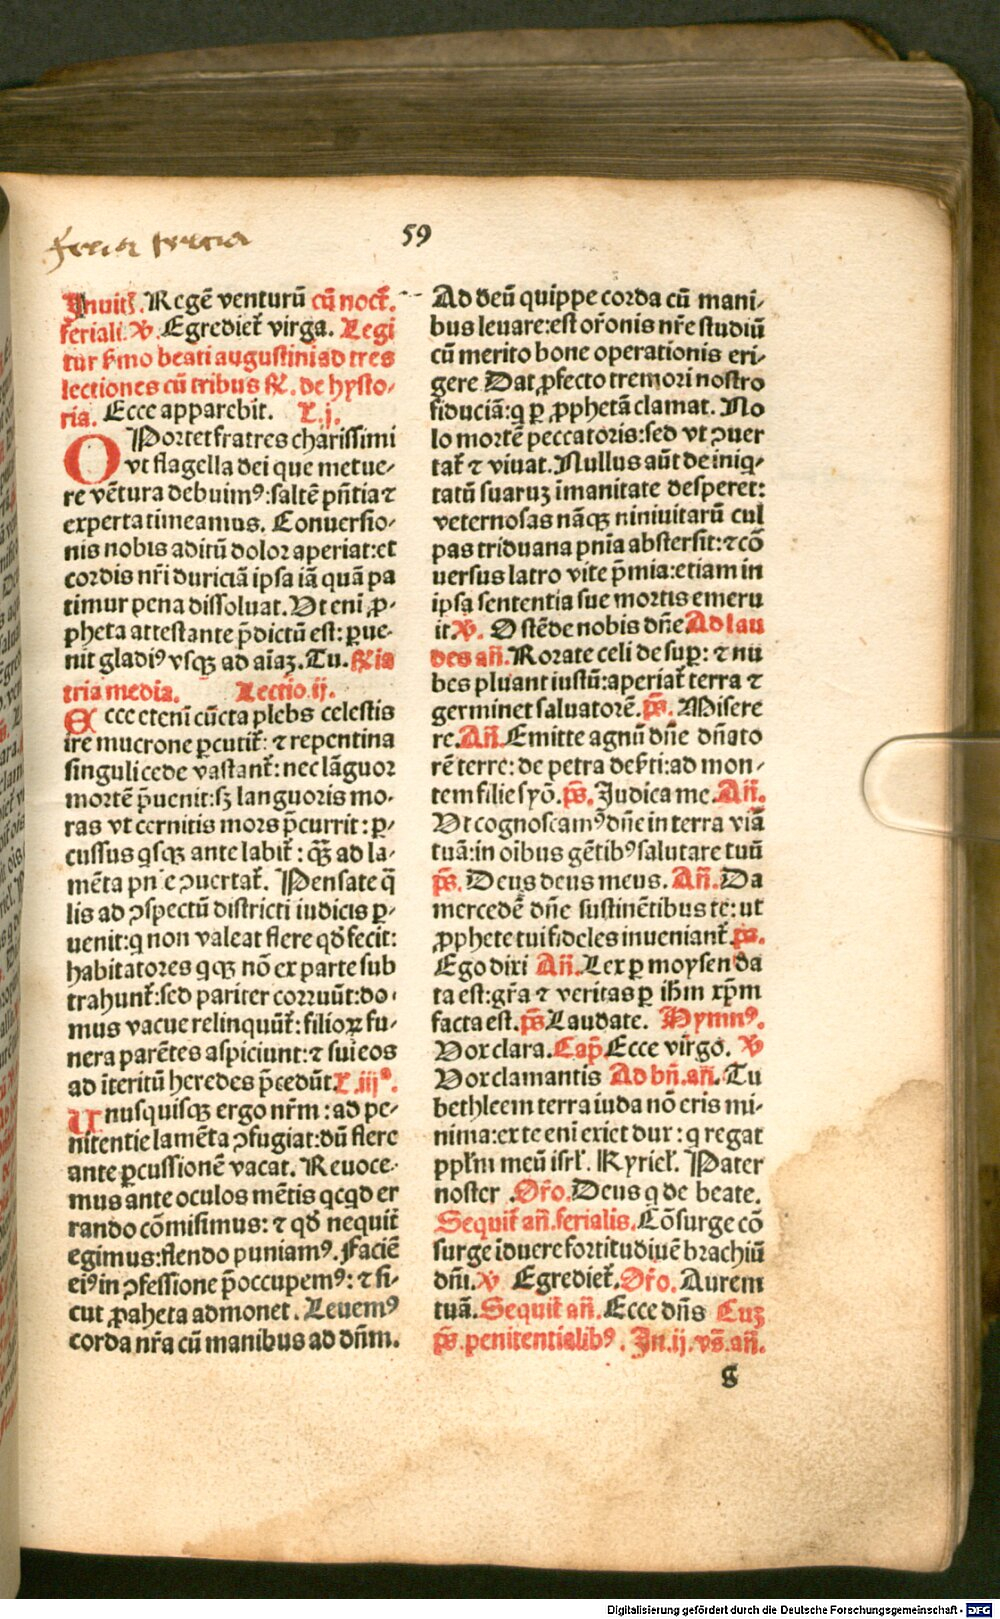 feria tercia
59
Inuitꝭ. Regē venturū cū noct̄.
feriali. ℣. Egrediet̄ virga. Legi
tur s̄mo beati augustini ad tres
lectiones cū tribus ℟. de hysto-
ria. Ecce apparebit. L.j.
OPortet fratres charissimi
vt flagella dei que metue-
re vētura debuimꝰ: saltē pn̄tia ⁊
experta timeamus. Conuersio-
nis nobis aditū dolor aperiat: et
cordis nr̄i duriciā ipsa iā quā pa
timur pena dissoluat. Vt eni ꝓ-
pheta attestante p̄dictū est: ꝑue-
nit gladiꝰ vsqꝫ ad aīaꝫ. Tu. ℟ia
tria media. Lectio.ij.
Ecce etenī cūcta plebs celestis
ire mucrone ꝑcutit̄: ⁊ repentina
singuli cede vastant̄: nec lāguor
mortē p̄uenit: sꝫ languoris mo-
ras vt cernitis mors p̄currit: ꝑ-
cussus qsqꝫ ante labit̄: qꝫ̄ ad la-
mēta pn̄ie ꝯuertat̄. Pensate q̄
lis ad ꝯspectū districti iudicis ꝑ-
uenit: q non valeat flere qd̄ fecit:
habitatores qqꝫ nō ex parte sub
trahunt̄: sed pariter corruūt: do-
mus vacue relinquūt̄: filioꝝ fu-
nera parētes aspiciunt: ⁊ sui eos
ad īteritū heredes p̄cedūt. L.iijª.
Unusquisqꝫ ergo nr̄m: ad pe-
nitentie lamēta ꝯfugiat: dū flere
ante ꝑcussionē vacat. Reuoce-
mus ante oculos mētis qcqd er
rando cōmisimus: ⁊ qd̄ nequit̄
egimus: flendo puniamꝰ. Faciē
eiꝰ in ꝯfessione p̄occupemꝰ: ⁊ si-
cut ꝓaheta admonet. Leuemꝰ
corda nr̄a cū manibus ad dn̄m.
Ad deū quippe corda cū mani-
bus leuare: est or̄onis nr̄e studiū
cū merito bone operationis eri-
gere Dat ꝓfecto tremori nostro
fiduciā: q ꝑ ꝓphetā clamat. No
lo mortē peccatoris: sed vt ꝯuer
tat̄ ⁊ viuat. Nullus aūt de iniq-
tatū suaruꝫ īmanitate desperet:
veternosas nāqꝫ niniuitarū cul
pas triduana pn̄ia abstersit: ⁊ cō
uersus latro vite p̄mia: etiam in
ipsa sententia sue mortis emeru
it ℣. Ostēde nobis dn̄e. Ad lau
des an̄. Rorate celi desuꝑ: ⁊ nu
bes pluant iustū: aperiat̄ terra ⁊
germinet saluatorē. ps̄. Misere
re. An̄. Emitte agnū dn̄e dn̄ato
rē terre: de petra des̄ti: ad mon-
tem filie syō. ps̄. Judica me. An̄.
Vt cognoscamꝰ dn̄e in terra viā
tuā: in oībus gētibꝰ salutare tuū
ps̄. Deus deus meus. An̄. Da
mercedē dn̄e sustinētibus te: ut
ꝓphete tui fideles inueniant̄. ps.
Ego dixi An̄. Lex ꝑ moysen da
ta est: gr̄a ⁊ veritas ꝑ ih̄m xp̄m
facta est. ps̄ Laudate. Hymnꝰ.
Vox clara. Cap̄. Ecce virgo. ℣
Vox clamantis Ad bn̄. an̄. Tu
bethleem terra iuda nō eris mi-
nima: ex te eni exiet dux: q regat
ppl̄m meū isrl̄. Kyriel̄. Pater
noster. Or̄o. Deus q de beate.
Sequit̄ an̄. ferialis. Cōsurge cō
surge īduere fortitudiuē brachiū
dn̄i. ℣ Egrediet̄. Or̄o. Aurem
tuā. Sequit̄ an̄. Ecce dn̄s Cuꝫ
ps̄. penitentialibꝰ. In .ij. vs̄. an̄.
g
Digitalisierung gefördert durch die Deutsche Forschungsgemeinschaft - DFG